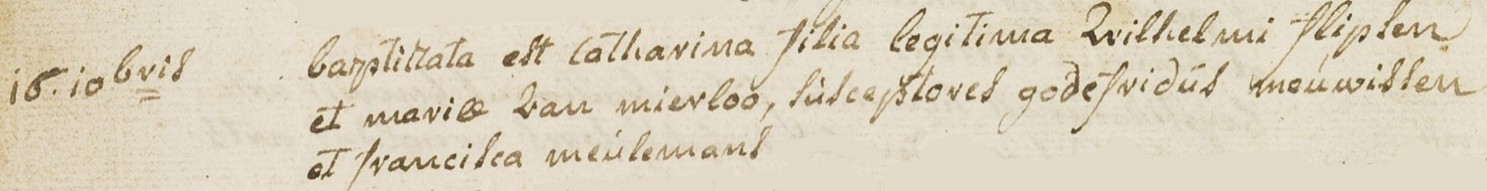 16. 10bris baptizata est Catharina filia legitima Wilhelmi flipsen
et mariæ van mierloo, susceptores godefridus meúwissen
et francisca meúlemans